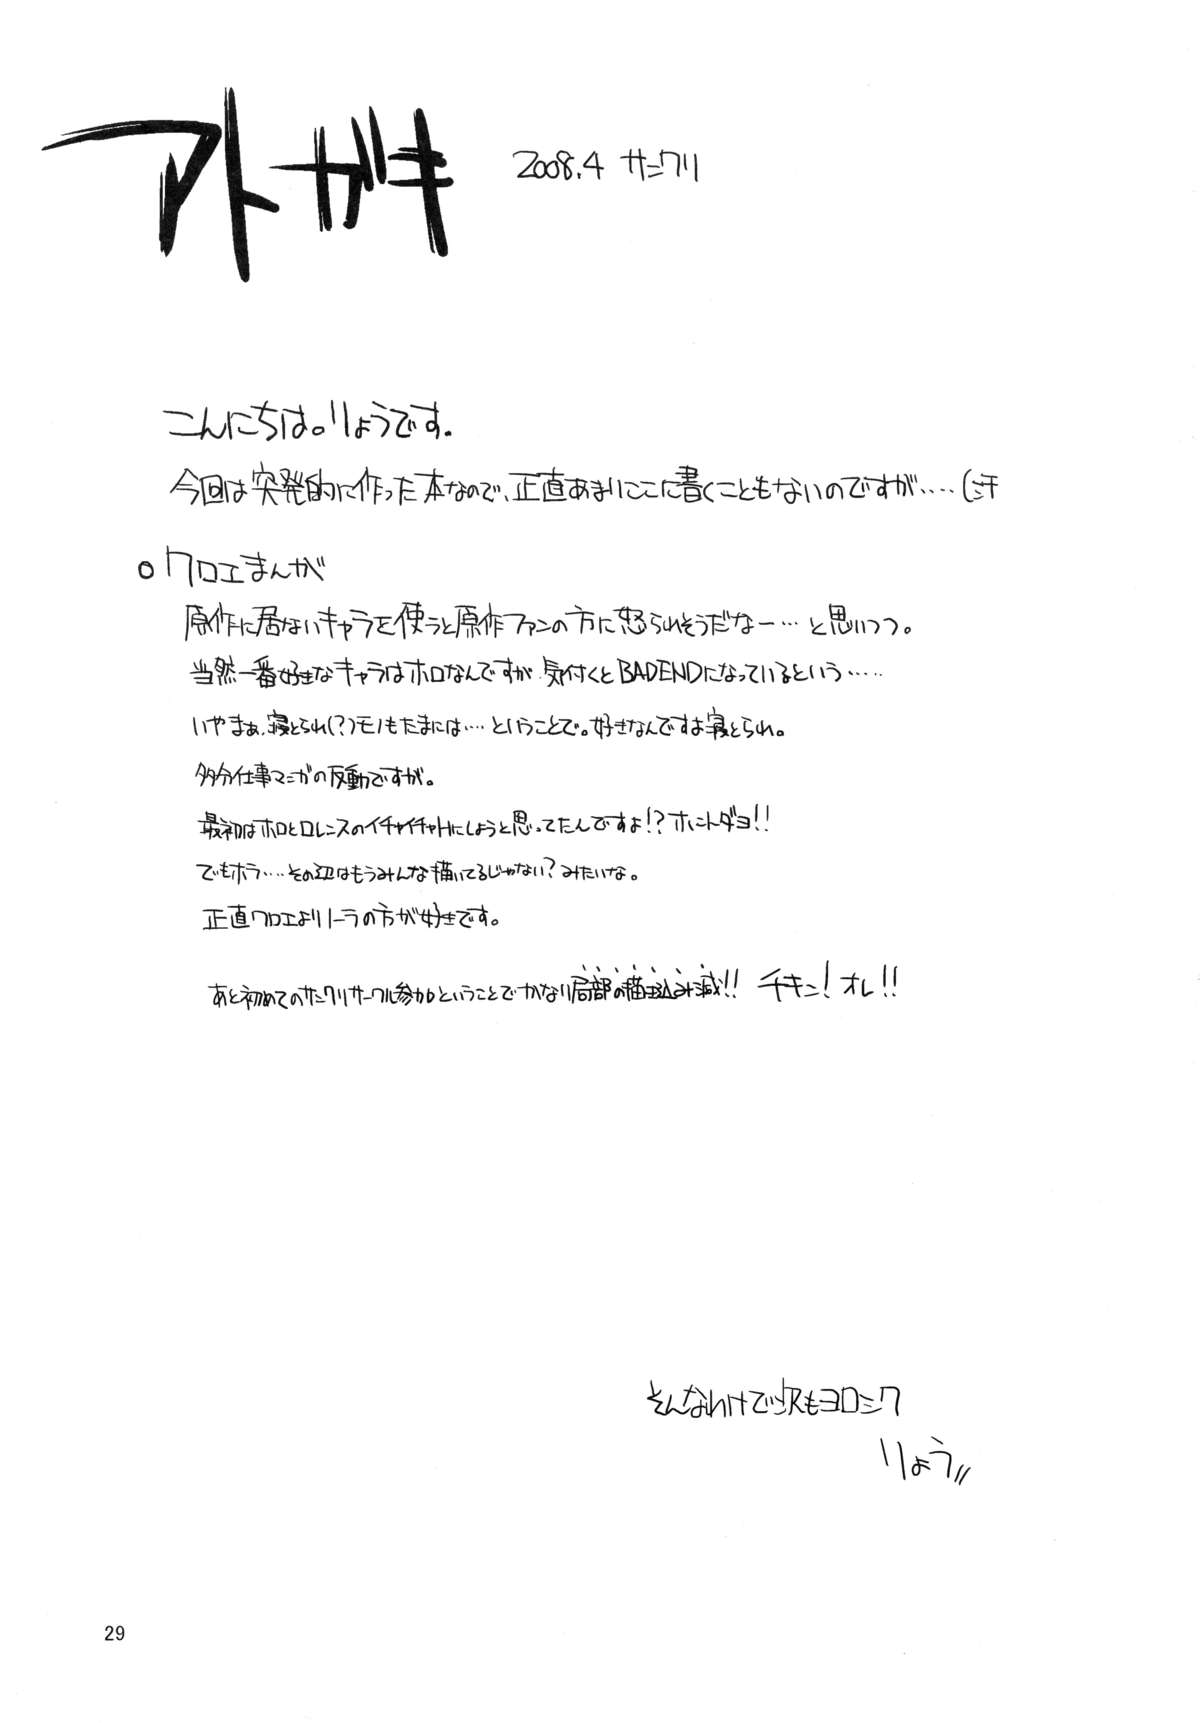 アトガキ
2008.4 サンクリ
こんにちは。りょうです。
今回は突発的に作った本なので、正直あまりここに書くこともないのですが‥‥(汗
○クロエまんが
原作に居ないキャラを使うと原作ファンの方に怒られそうだなー…と思いつつ。
当然一番好きなキャラはホロなんですが気付くとBADENDになっているという‥‥‥
いやまぁ、寝とられ(?)モノもたまには‥‥ということで。好きなんですよ寝とられ。
多分仕事マンガの反動ですが。
最初はホロとロレンスのイチャイチャHにしようと思ってたんですよ!?ホントダヨ!!
でもホラ‥‥その辺はもうみんな描いてるじゃない?みたいな。
正直クロエよりノーラの方が好きです。
あと初めてのサンクリサークル参加ということでかなり局部の描き込み減!! チキン!オレ!!
そんなわけで次もヨロシク
りょう//
29